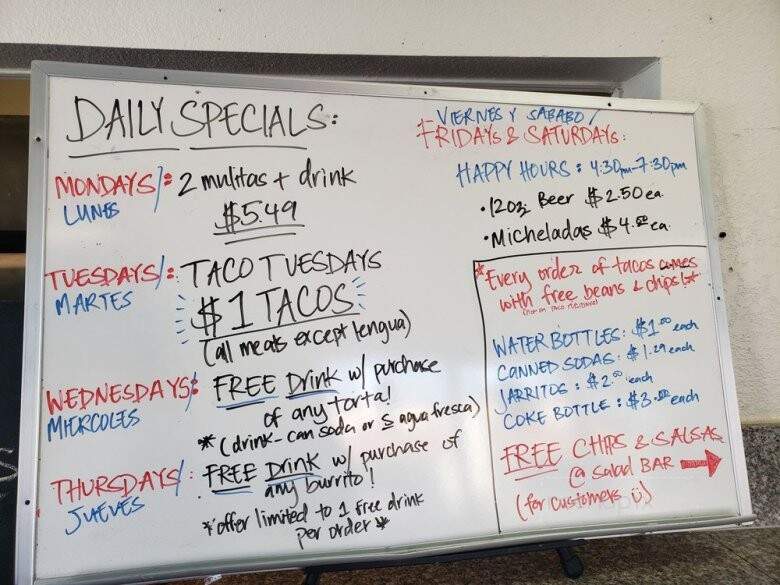 DAILY SPECIALS:
MONDAYS/: 2 mulitas + drink
LUNES
$5.49
TUESDAYS/: TACO TUESDAYS
MARTES
$1 TACOS
(all meats except lengua)
WEDNESDAYS: FREE Drink w/ purchase
MIERCOLES
of any torta!
* (drink-can soda or S agua fresca)
THURSDAYS/: FREE Drink w/ purchase of
JUEVES
any burrito!
* offer limited to 1 free drink
per order *
VIERNES Y SABABO/
FRIDAYS & SATURDAYS:
HAPPY HOURS: 4:30pm-7:30pm
• 12oz Beer $2.50 ea.
• Micheladas $4.00 ea.
* Every order of tacos comes
with free beans & chips! *
WATER BOTTLES: $1.00 each
CANNED SODAS: $1.29 each
JARRITOS: $2.00 each
COKE BOTTLE: $3.00 each
FREE CHIPS & SALSAS
@ salad BAR
(for customers ü)